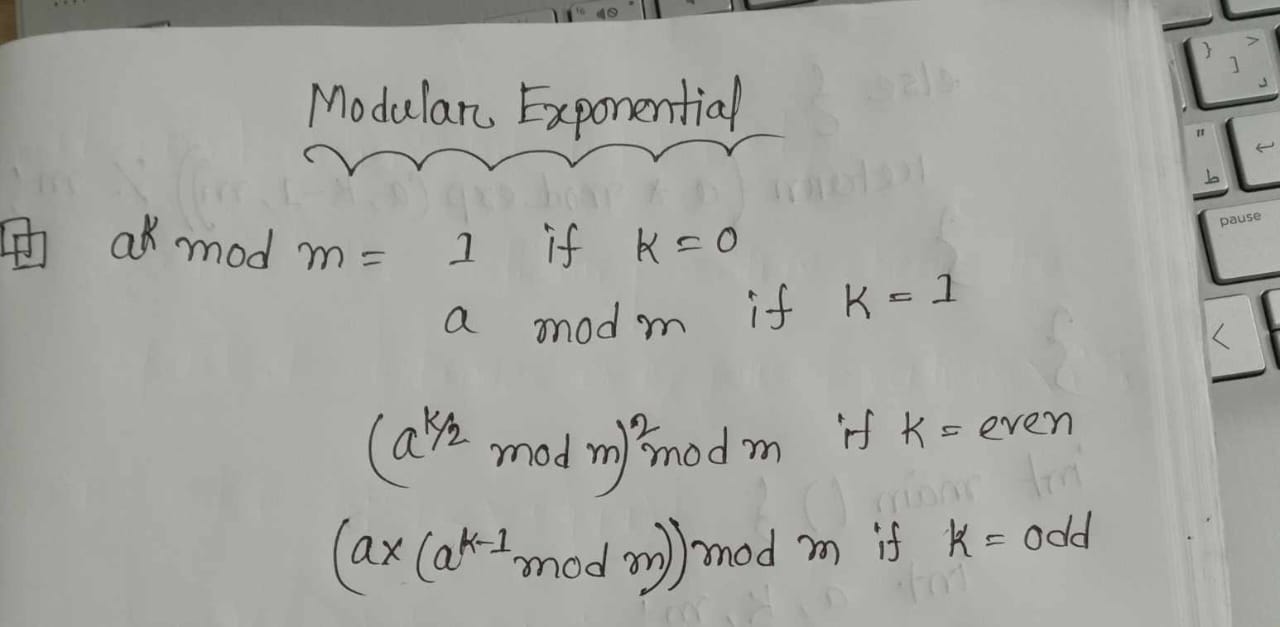 Modular Exponential
a^k mod m = 1 if k = 0
a mod m if k = 1
(a^k/2 mod m)^2 mod m if k = even
(a x (a^k-1 mod m)) mod m if k = odd
pause